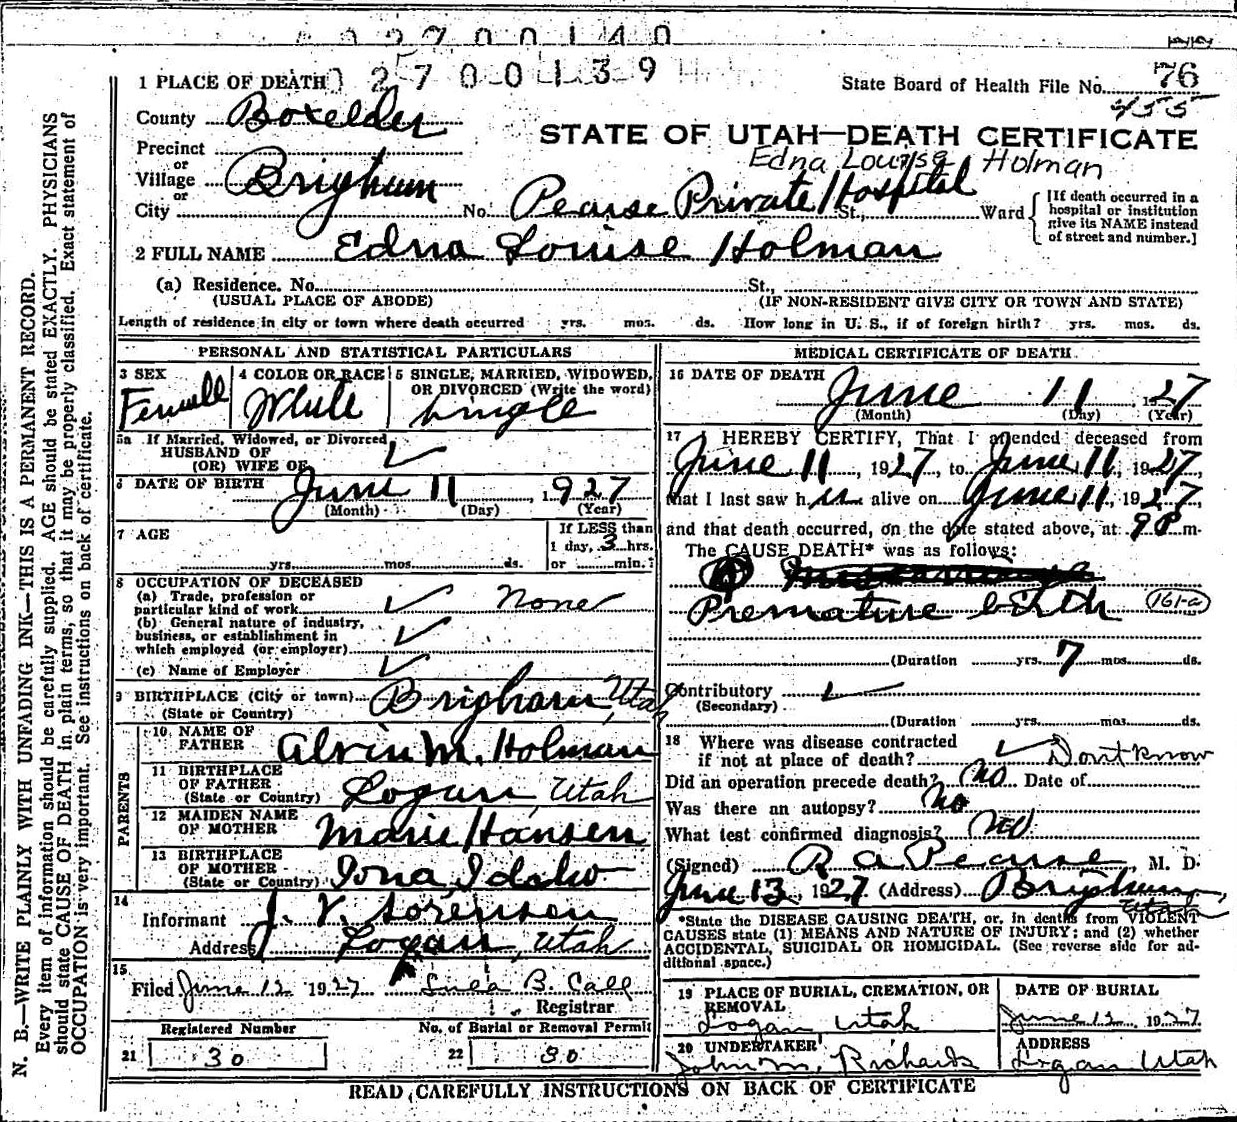 2700140
2700139
1 PLACE OF DEATH
State Board of Health File No. 76
455
County Boxelder
STATE OF UTAH—DEATH CERTIFICATE
Precinct
Edna Louise Holman
or
Village Brigham
or
City No. Pearse Private Hospital St., Ward
[If death occurred in a
hospital or institution
give its NAME instead
of street and number.]
2 FULL NAME Edna Louise Holman
(a) Residence. No. St.,
(USUAL PLACE OF ABODE) (IF NON-RESIDENT GIVE CITY OR TOWN AND STATE)
Length of residence in city or town where death occurred yrs. mos. ds. How long in U. S., if of foreign birth? yrs. mos. ds.
PERSONAL AND STATISTICAL PARTICULARS
3 SEX
Femall
4 COLOR OR RACE
White
5 SINGLE, MARRIED, WIDOWED,
OR DIVORCED (Write the word)
Single
5a If Married, Widowed, or Divorced
HUSBAND OF
(OR) WIFE OF
6 DATE OF BIRTH June 11, 1927
(Month) (Day) (Year)
7 AGE
yrs. mos. ds.
If LESS than
1 day, 3 hrs.
or min.?
8 OCCUPATION OF DECEASED
(a) Trade, profession or
particular kind of work None
(b) General nature of industry,
business, or establishment in
which employed (or employer)
(c) Name of Employer
9 BIRTHPLACE (City or town) Brigham, Utah
(State or Country)
PARENTS
10 NAME OF
FATHER Alvin M. Holman
11 BIRTHPLACE
OF FATHER
(State or Country) Logan, Utah
12 MAIDEN NAME
OF MOTHER Marie Hansen
13 BIRTHPLACE
OF MOTHER
(State or Country) Iona Idaho
14
Informant J. V. Sorensen
Address Logan, Utah
15
Filed June 12 1927 B. Call
Registrar
Registered Number No. of Burial or Removal Permit
21 30 22 30
MEDICAL CERTIFICATE OF DEATH
16 DATE OF DEATH June 11 1927
(Month) (Day) (Year)
17 I HEREBY CERTIFY, That I attended deceased from
June 11, 1927, to June 11, 1927,
that I last saw her alive on June 11, 1927,
and that death occurred, on the date stated above, at 9P m.
The CAUSE DEATH* was as follows:
Premature birth 161-a
(Duration yrs. 7 mos. ds.
Contributory
(Secondary)
(Duration yrs. mos. ds.
18 Where was disease contracted
if not at place of death? Dont know
Did an operation precede death? No Date of
Was there an autopsy? No
What test confirmed diagnosis? No
(Signed) R A Pearse, M. D.
June 13, 1927 (Address) Brigham, Utah
*State the DISEASE CAUSING DEATH, or, in deaths from VIOLENT
CAUSES state (1) MEANS AND NATURE OF INJURY; and (2) whether
ACCIDENTAL, SUICIDAL OR HOMICIDAL. (See reverse side for ad-
ditional space.)
19 PLACE OF BURIAL, CREMATION, OR
REMOVAL
Logan, Utah
DATE OF BURIAL
June 12, 1927
20 UNDERTAKER
John M. Richards
ADDRESS
Logan Utah
READ CAREFULLY INSTRUCTIONS ON BACK OF CERTIFICATE
N. B.—WRITE PLAINLY WITH UNFADING INK—THIS IS A PERMANENT RECORD.
Every item of information should be carefully supplied. AGE should be stated EXACTLY. PHYSICIANS
should state CAUSE OF DEATH in plain terms, so that it may be properly classified. Exact statement of
OCCUPATION is very important. See instructions on back of certificate.